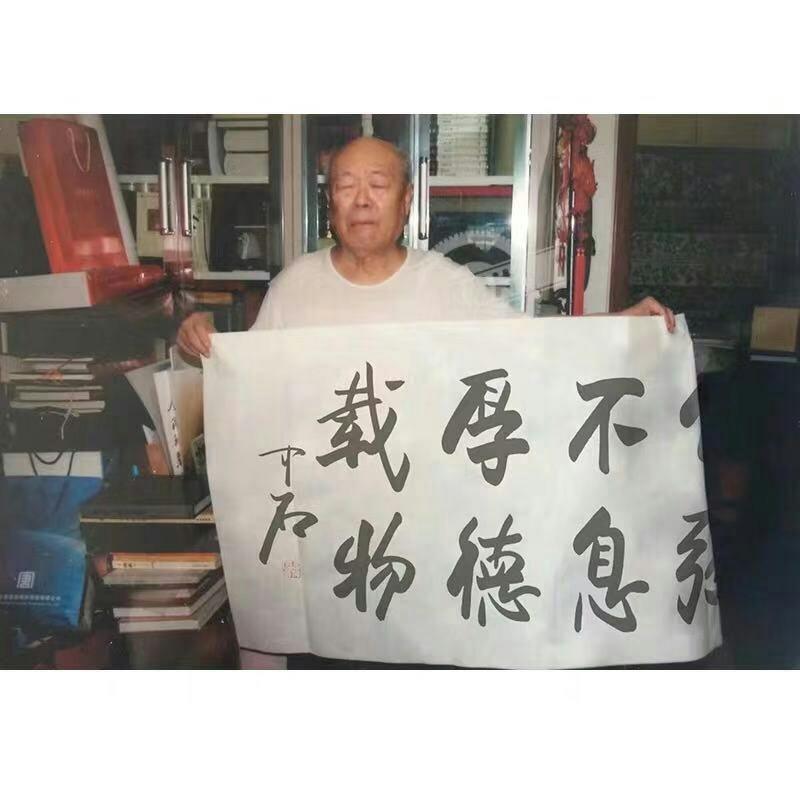 强
不息
厚德
载物
中石